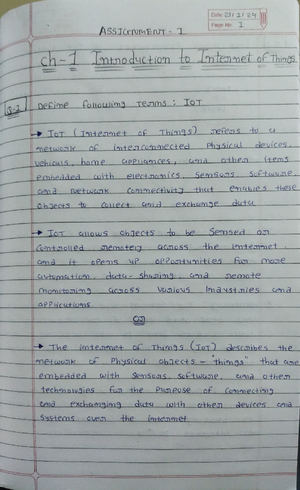 Date: 23/2/24
Page No: 1
ASSIGNMENT - 1
ch-1 Introduction to Internet of Things
Q-1 Define following terms : IoT
→ IoT (Internet of Things) refers to a
network of interconnected Physical devices,
vehicals, home appliances, and other items
embedded with electronics, sensors, software,
and network connectivity that enables these
objects to collect and exchange data
→ IoT allows objects to be sensed or
controlled remotely across the internet
and it opens up opportunities for more
automation, data-sharing, and remote
monitoring across various industries and
applications.
OR
→ The internet of Things (IoT) describes the
network of Physical objects - "things" that are
embedded with sensors, software, and other
technologies for the Purpose of connecting
and exchanging data with other devices and
systems over the internet